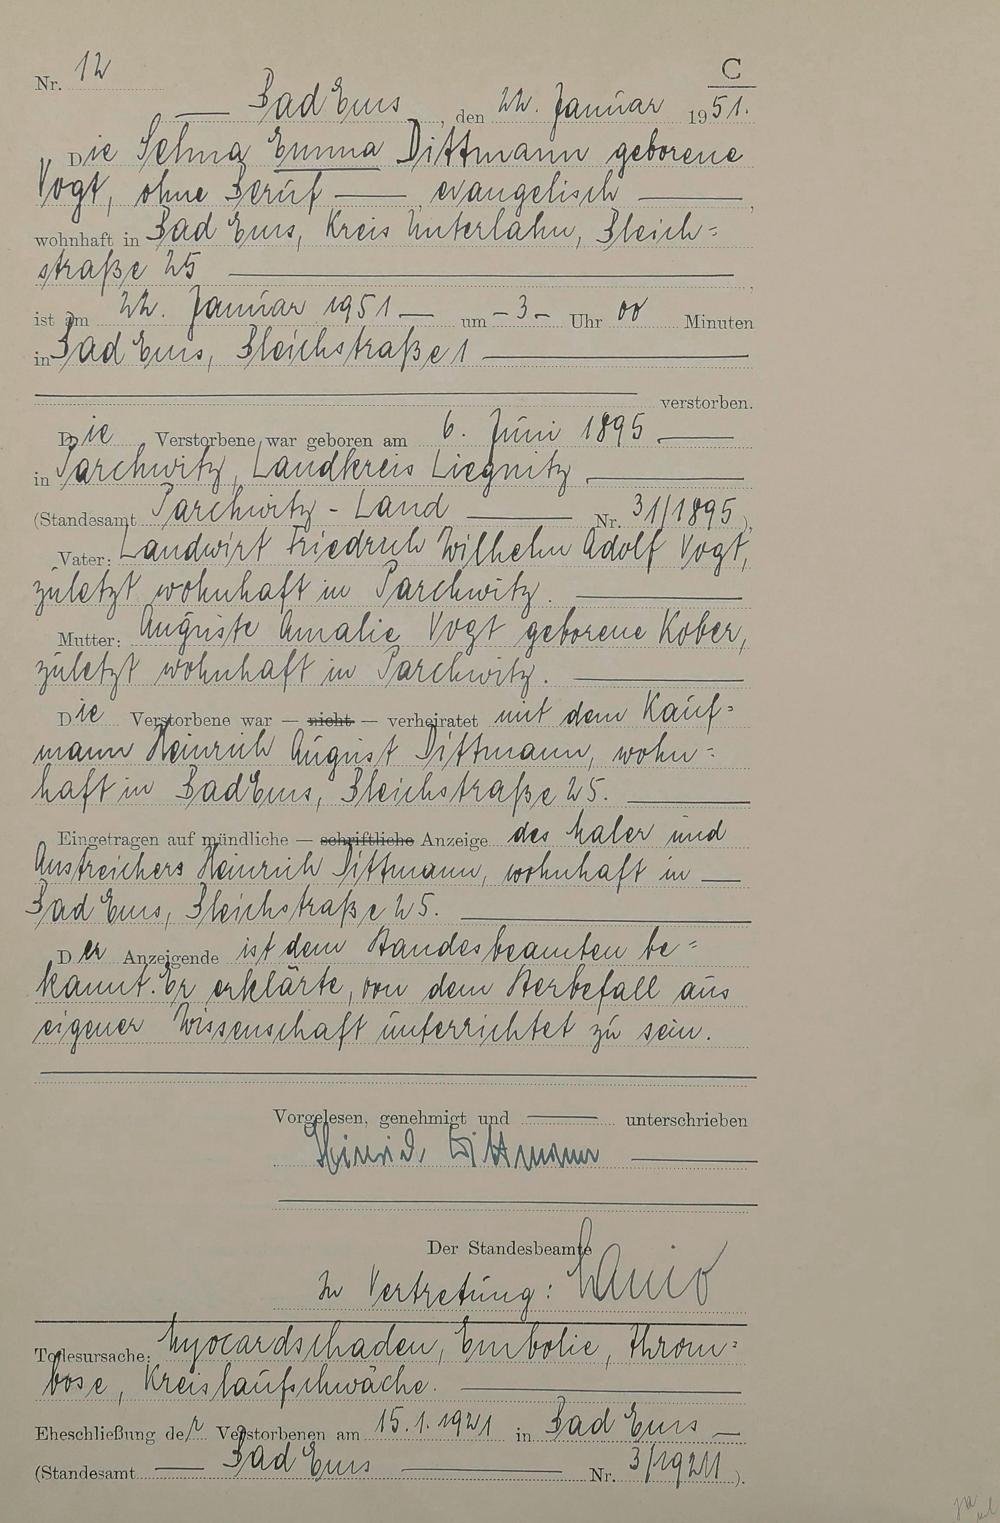 Nr. 12
C
Bad Ems, den 22. Januar 1951.
Die Selma Emma Dittmann geborene
Vogt, ohne Beruf — , evangelisch — ,
wohnhaft in Bad Ems, Kreis Unterlahn, Bleich=
straße 25 — ,
ist am 22. Januar 1951 — um – 3 – Uhr 00 Minuten
in Bad Ems, Bleichstraße 1 —
verstorben.
Die Verstorbene war geboren am 6. Juni 1895 —
in Parchwitz, Landkreis Liegnitz —
(Standesamt Parchwitz - Land — Nr. 31/1895),
Vater: Landwirt Friedrich Wilhelm Adolf Vogt,
zuletzt wohnhaft in Parchwitz. —
Mutter: Auguste Amalie Vogt geborene Kober,
zuletzt wohnhaft in Parchwitz. —
Die Verstorbene war — nicht — verheiratet mit dem Kauf=
mann Heinrich August Dittmann, wohn=
haft in Bad Ems, Bleichstraße 25. —
Eingetragen auf mündliche — schriftliche Anzeige des Maler und
Anstreichers Heinrich Dittmann, wohnhaft in —
Bad Ems, Bleichstraße 25. —
Der Anzeigende ist dem Standesbeamten be=
kannt. Er erklärte, von dem Sterbefall aus
eigener Wissenschaft unterrichtet zu sein.
Vorgelesen, genehmigt und — unterschrieben
Heinrich Dittmann —
Der Standesbeamte
In Vertretung:
Todesursache: Myocardschaden, Embolie, Throm=
bose, Kreislaufschwäche. —
Eheschließung der Verstorbenen am 15.1.1921 in Bad Ems —
(Standesamt — Bad Ems — Nr. 3/1921).